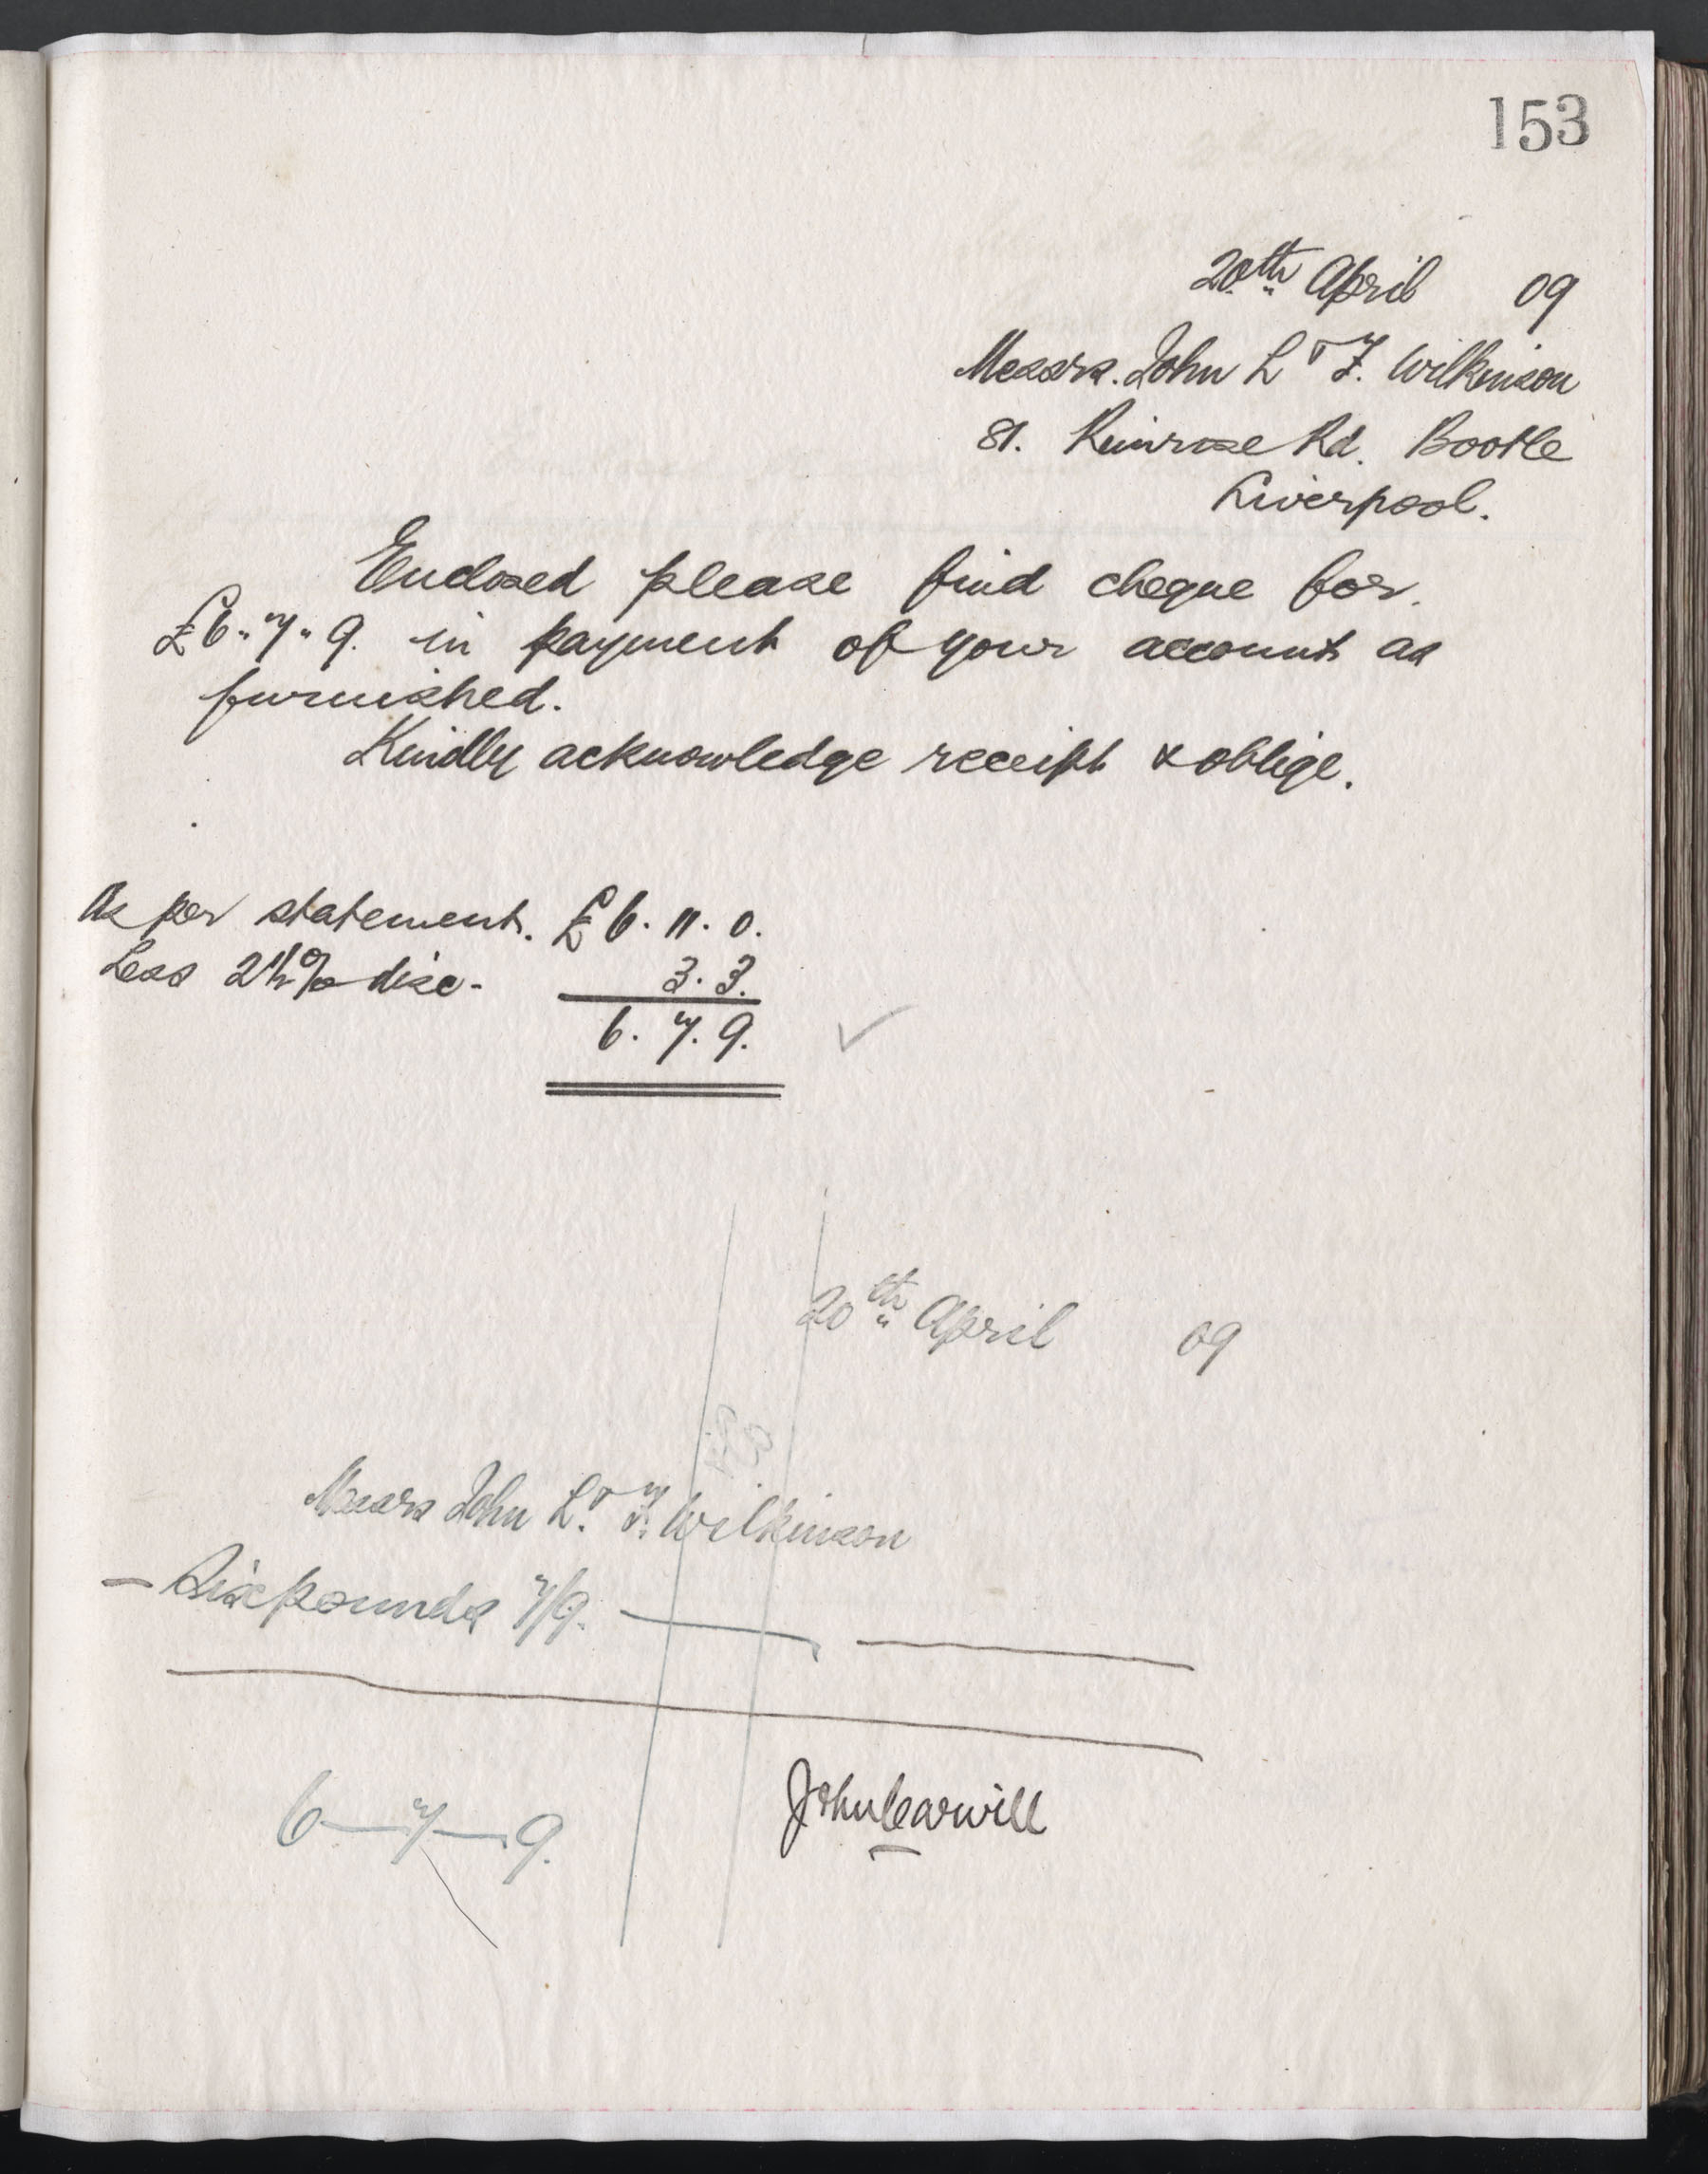 153
20th April 09
Messrs. John L & F. Wilkinson
81. Rimrose Rd. Bootle
Liverpool.
Enclosed please find cheque for.
£6 " 7 " 9. in payment of your account as
furnished.
Kindly acknowledge receipt & oblige.
As per statement. £6. 11. 0.
Less 2½% disc. 3. 3.
6. 7. 9.
20th April 09
Messrs John L. & F. Wilkinson
— Six pounds 7/9. —
6 — 7 — 9.
John Carwill